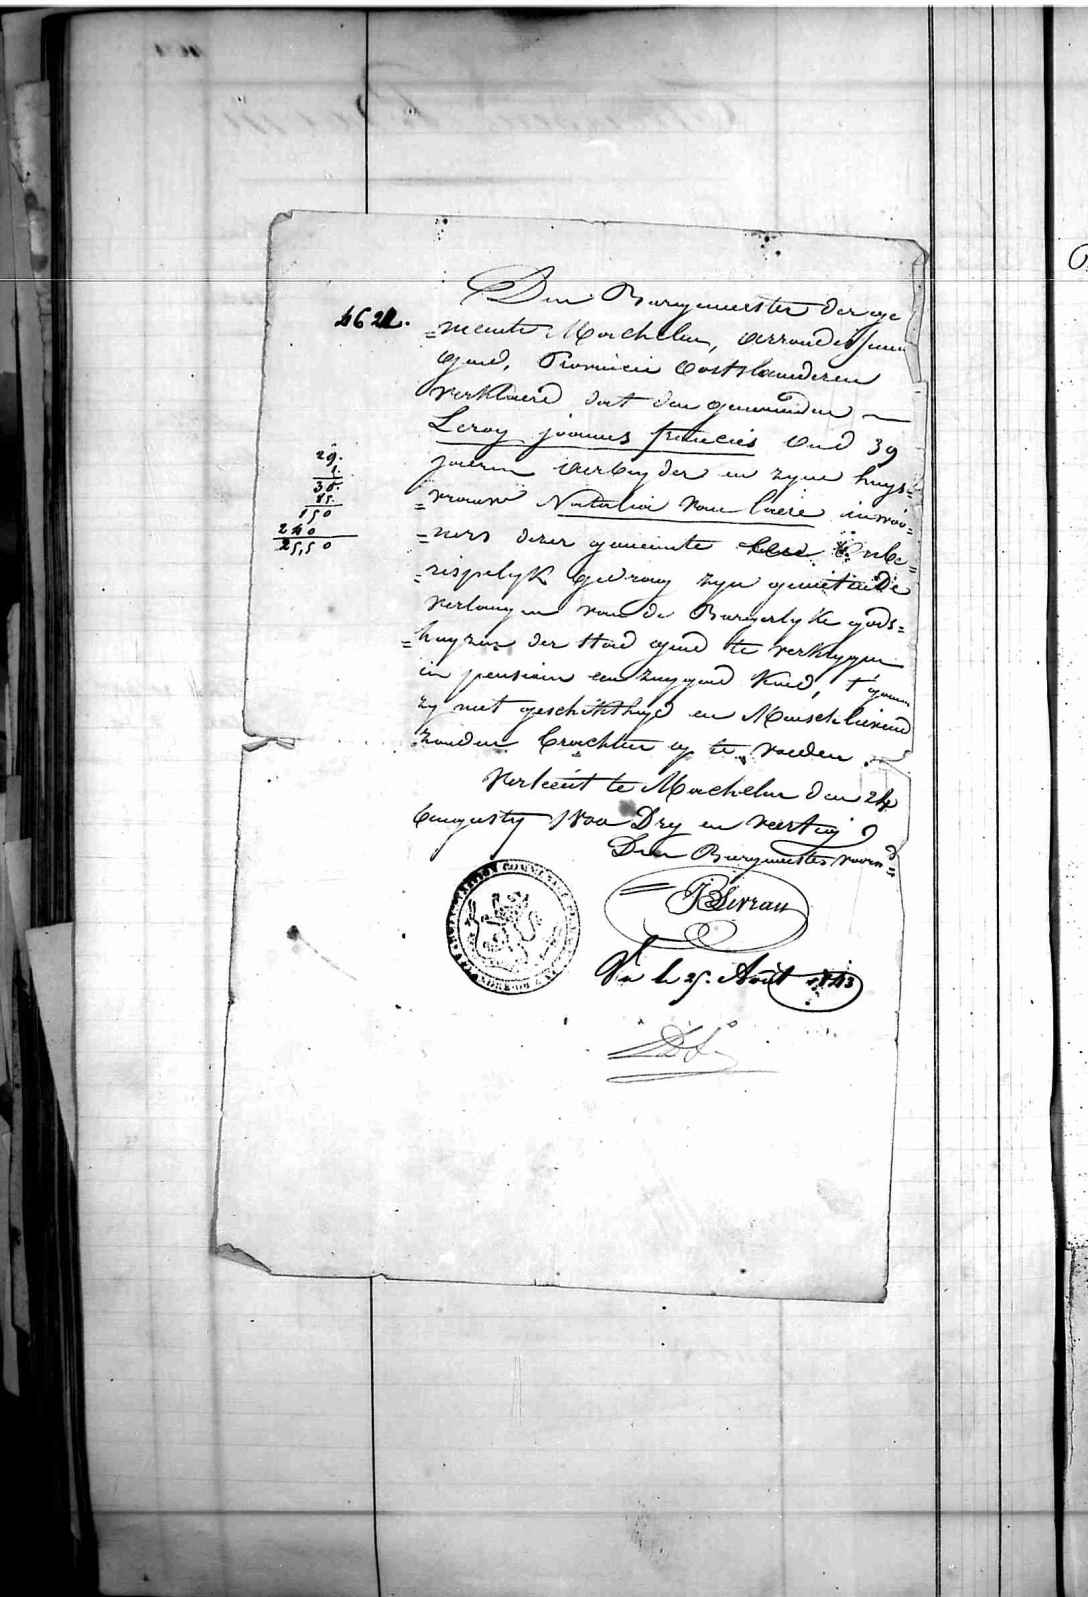 Den Burgemeester der ge
=meente Machelen, arrondissem
Gend, Provincie Oostvlaenderen
verklaerd dat den genaemden —
Leroy joannes francies oud 39
jaeren aerbeyder en zyne huys=
=vrouwe Natalia van laere inwoo=
=ners dezer gemeente onbe=
=rispelyk gedrag zyn genietende
verlangen van de Burgerlyke gods=
=huyzen der stad gend te verkrygen
in pensioen een zuygend kind, t'geen
zy met geschikthyd en Menschlievend
zouden trachten op te voeden.
Verleent te Machelen den 24
augusty 1800 Dry en veertig
Den Burgmeester voornd
4622.
29.
1.
30.
15.
150
240
25,50
Vu le 25. Août 1843